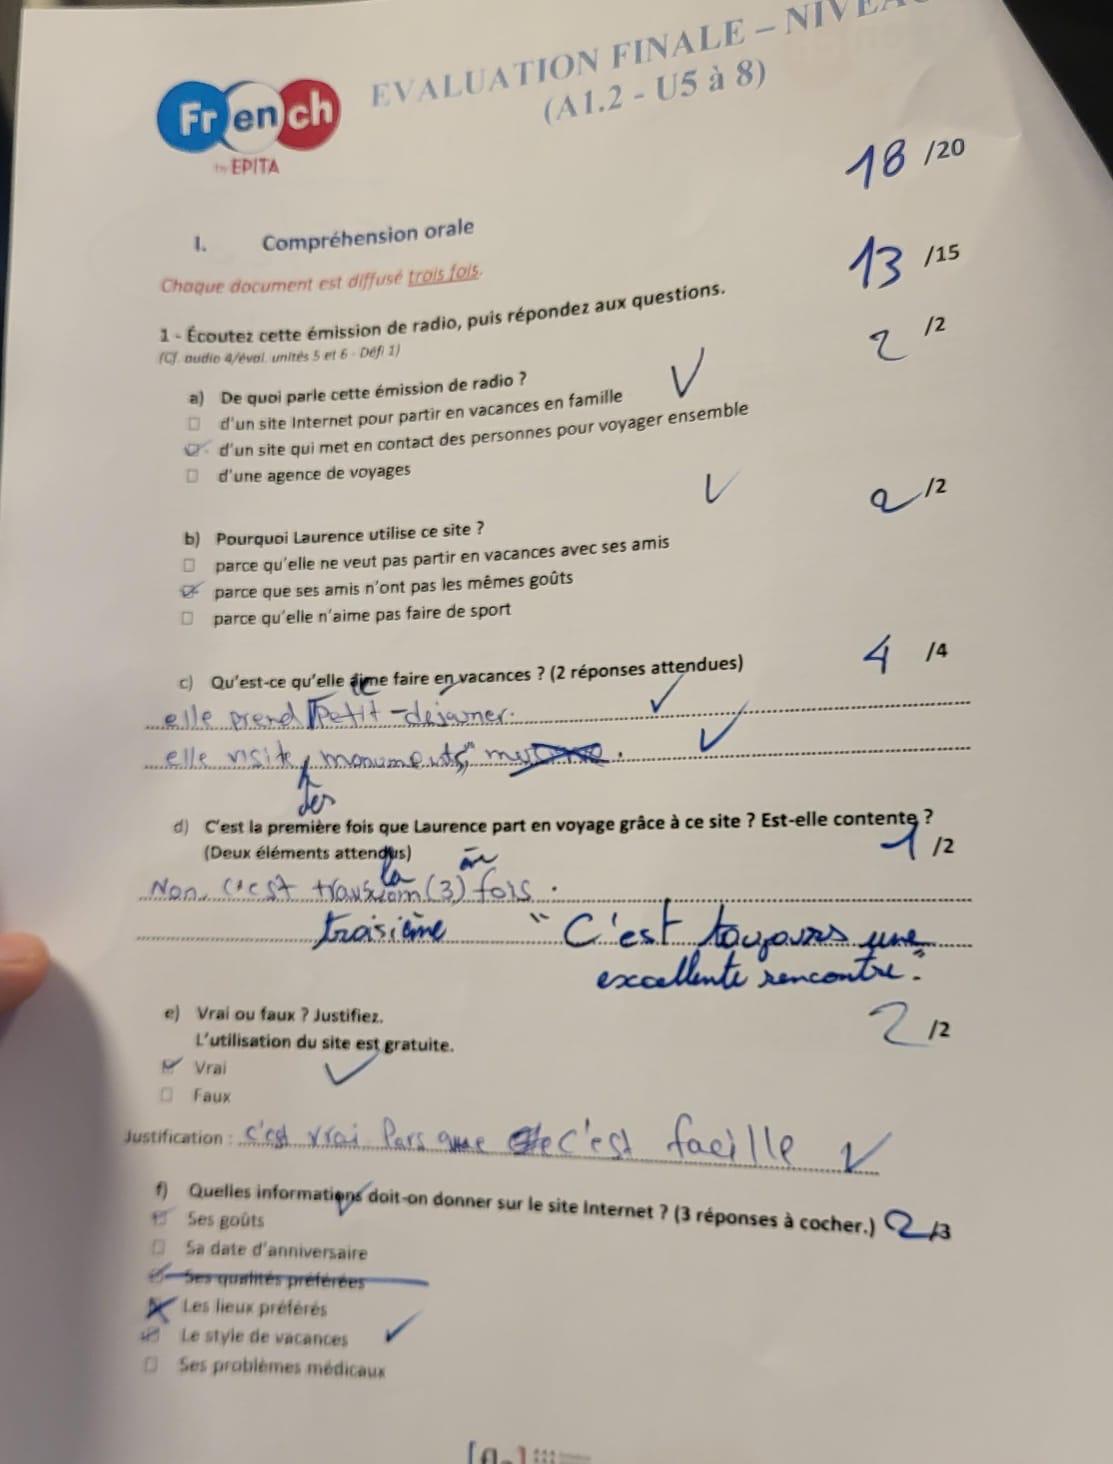 EVALUATION FINALE – NIVEA
(A1.2 - U5 à 8)
French
by EPITA
18 /20
I. Compréhension orale
13 /15
Chaque document est diffusé trois fois.
1 - Écoutez cette émission de radio, puis répondez aux questions.
(Cf. audio 4/éval. unités 5 et 6 - Défi 1)
2 /2
a) De quoi parle cette émission de radio ?
d'un site Internet pour partir en vacances en famille
d'un site qui met en contact des personnes pour voyager ensemble
d'une agence de voyages
2 /2
b) Pourquoi Laurence utilise ce site ?
parce qu'elle ne veut pas partir en vacances avec ses amis
parce que ses amis n'ont pas les mêmes goûts
parce qu'elle n'aime pas faire de sport
4 /4
c) Qu'est-ce qu'elle aime faire en vacances ? (2 réponses attendues)
le
elle prend Petit-dejauner.
elle visite monuments,
des
d) C'est la première fois que Laurence part en voyage grâce à ce site ? Est-elle contente ?
(Deux éléments attendus)
1 /2
la
Non, c'est (3) fois.
troisième "C'est toujours une
excellente rencontre."
e) Vrai ou faux ? Justifiez.
2 /2
L'utilisation du site est gratuite.
Vrai
Faux
Justification : c'est vrai Pars que c'est facille
f) Quelles informations doit-on donner sur le site Internet ? (3 réponses à cocher.) 2/3
Ses goûts
Sa date d'anniversaire
Ses qualités préférées
Les lieux préférés
Le style de vacances
Ses problèmes médicaux